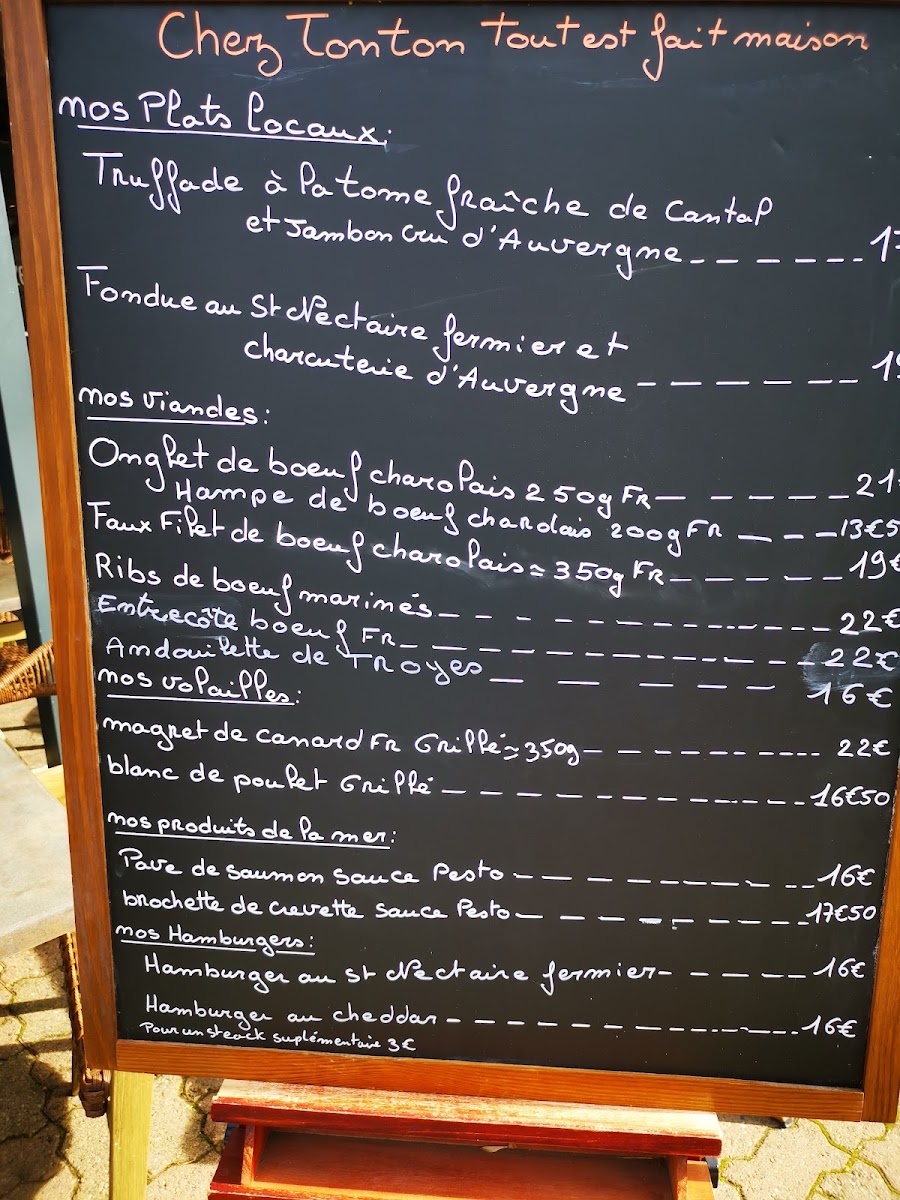 Chez Tonton tout est fait maison
nos Plats locaux:
Truffade à la tome fraîche de Cantal
et Jambon cru d'Auvergne ------ 17
Fondue au St Nectaire fermier et
charcuterie d'Auvergne ------ 19
nos viandes:
Onglet de boeuf charolais 250g FR ----- 21
Hampe de boeuf charolais 200g FR ---- 13€5
Faux Filet de boeuf charolais ≈ 350g FR ----- 19€
Ribs de boeuf marinés ---------- 22€
Entrecôte boeuf FR ----------- 22€
Andouillette de TROYES ----- 16€
nos volailles:
magret de canard FR Grillé ≈ 350g --------- 22€
blanc de poulet Grillé ----------- 16€50
nos produits de la mer:
Pave de saumon sauce Pesto --------- 16€
brochette de crevette sauce Pesto -------- 17€50
nos Hamburgers:
Hamburger au St Nectaire fermier ----- 16€
Hamburger au cheddar ------------ 16€
Pour un steack suplémentaire 3€